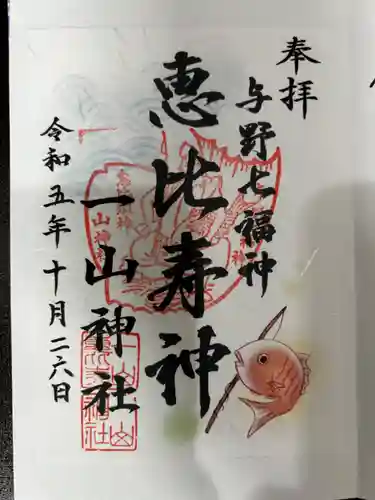 奉拝
与野七福神
恵比寿神
一山神社
令和五年十月二六日